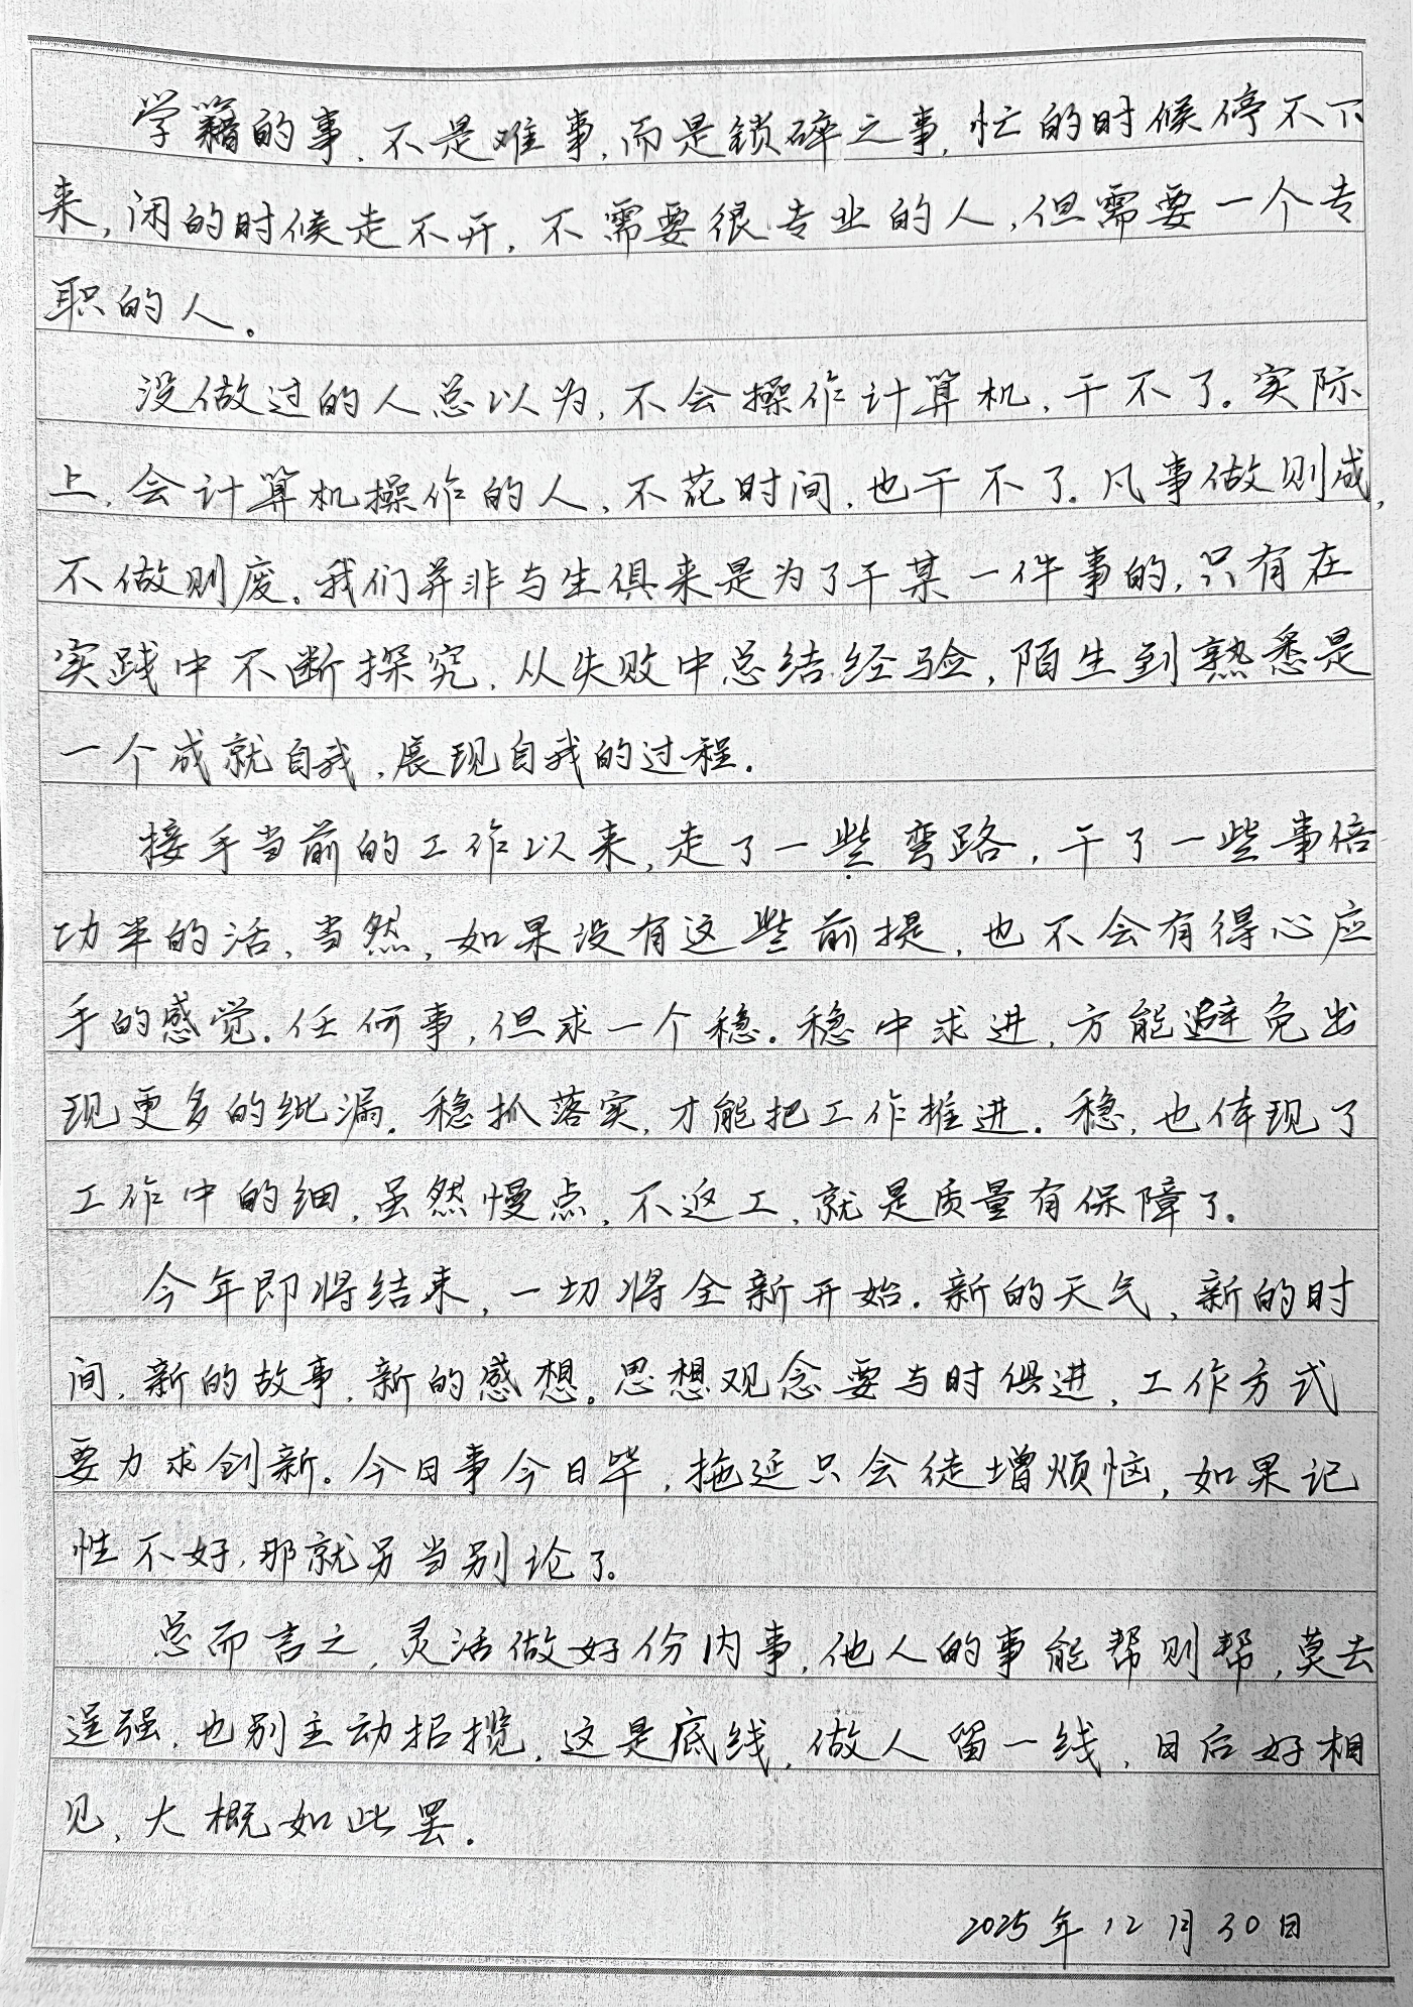 学籍的事,不是难事,而是锁碎之事,忙的时候停不下
来,闲的时候走不开,不需要很专业的人,但需要一个专
职的人。
没做过的人总以为,不会操作计算机,干不了。实际
上,会计算机操作的人,不花时间,也干不了。凡事做则成,
不做则废。我们并非与生俱来是为了干某一件事的,只有在
实践中不断探究,从失败中总结经验,陌生到熟悉是
一个成就自我,展现自我的过程。
接手当前的工作以来,走了一些弯路,干了一些事倍
功半的活,当然,如果没有这些前提,也不会有得心应
手的感觉。任何事,但求一个稳。稳中求进,方能避免出
现更多的纰漏。稳抓落实,才能把工作推进。稳,也体现了
工作中的细,虽然慢点,不返工,就是质量有保障了。
今年即将结束,一切将全新开始。新的天气,新的时
间,新的故事,新的感想。思想观念要与时俱进,工作方式
要力求创新。今日事今日毕,拖延只会徒增烦恼,如果记
性不好,那就另当别论了。
总而言之,灵活做好份内事,他人的事能帮则帮,莫去
逞强,也别主动招揽,这是底线,做人留一线,日后好相
见,大概如此罢。
2025年12月30日